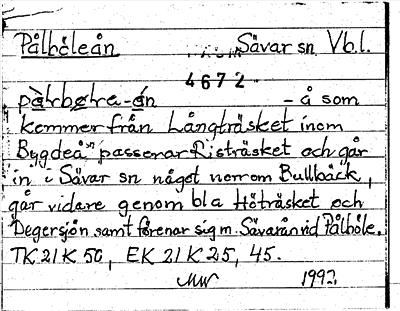 Pålböleån Sävar sn Vb.l.
4672
pàrbøra-án - å som
kommer från Långträsket inom
Bygdeå sn passerar Risträsket och går
in i Sävar sn något norrom Bullbäck,
går vidare genom bl a Hötträsket och
Degersjön samt förenar sig m. Sävarån vid Pålböle.
TK 21 K 50, EK 21 K 25, 45.
MW 1992